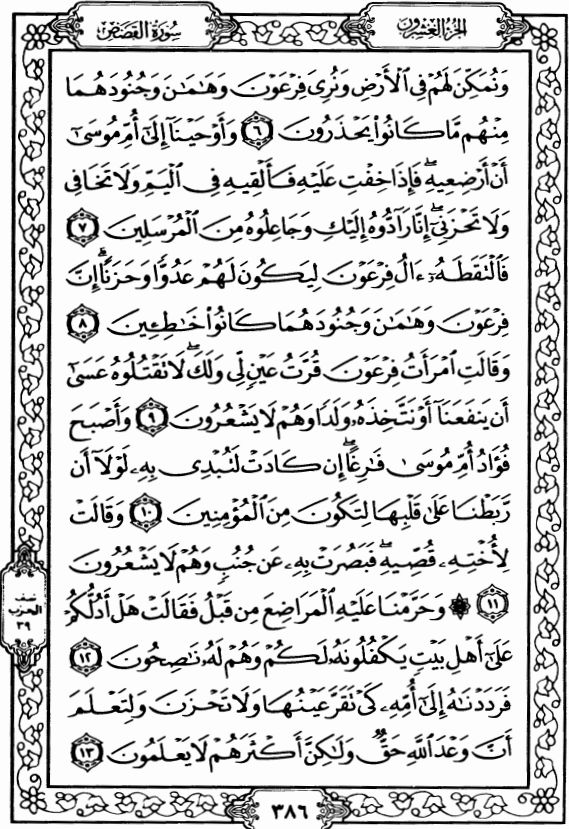 سُورَةُ القَصَصِ
الجزء العشرون
وَنُمَكِّنَ لَهُمْ فِي ٱلْأَرْضِ وَنُرِىَ فِرْعَوْنَ وَهَٰمَٰنَ وَجُنُودَهُمَا
مِنْهُم مَّا كَانُوا۟ يَحْذَرُونَ ٦ وَأَوْحَيْنَآ إِلَىٰٓ أُمِّ مُوسَىٰٓ
أَنْ أَرْضِعِيهِ ۖ فَإِذَا خِفْتِ عَلَيْهِ فَأَلْقِيهِ فِي ٱلْيَمِّ وَلَا تَخَافِي
وَلَا تَحْزَنِيٓ ۖ إِنَّا رَآدُّوهُ إِلَيْكِ وَجَاعِلُوهُ مِنَ ٱلْمُرْسَلِينَ ٧
فَٱلْتَقَطَهُۥٓ ءَالُ فِرْعَوْنَ لِيَكُونَ لَهُمْ عَدُوًّا وَحَزَنًا ۗ إِنَّ
فِرْعَوْنَ وَهَٰمَٰنَ وَجُنُودَهُمَا كَانُوا۟ خَٰطِـِٔينَ ٨
وَقَالَتِ ٱمْرَأَتُ فِرْعَوْنَ قُرَّتُ عَيْنٍ لِّي وَلَكَ ۖ لَا تَقْتُلُوهُ عَسَىٰٓ
أَن يَنفَعَنَآ أَوْ نَتَّخِذَهُۥ وَلَدًا وَهُمْ لَا يَشْعُرُونَ ٩ وَأَصْبَحَ
فُؤَادُ أُمِّ مُوسَىٰ فَٰرِغًا ۖ إِن كَادَتْ لَتُبْدِي بِهِۦ لَوْلَآ أَن
رَّبَطْنَا عَلَىٰ قَلْبِهَا لِتَكُونَ مِنَ ٱلْمُؤْمِنِينَ ١٠ وَقَالَتْ
لِأُخْتِهِۦ قُصِّيهِ ۖ فَبَصُرَتْ بِهِۦ عَن جُنُبٍ وَهُمْ لَا يَشْعُرُونَ
١١ ۞ وَحَرَّمْنَا عَلَيْهِ ٱلْمَرَاضِعَ مِن قَبْلُ فَقَالَتْ هَلْ أَدُلُّكُمْ
عَلَىٰٓ أَهْلِ بَيْتٍ يَكْفُلُونَهُۥ لَكُمْ وَهُمْ لَهُۥ نَٰصِحُونَ ١٢
فَرَدَدْنَٰهُ إِلَىٰٓ أُمِّهِۦ كَيْ تَقَرَّ عَيْنُهَا وَلَا تَحْزَنَ وَلِتَعْلَمَ
أَنَّ وَعْدَ ٱللَّهِ حَقٌّ وَلَٰكِنَّ أَكْثَرَهُمْ لَا يَعْلَمُونَ ١٣
نصف
الحزب
٣٩
٣٨٦